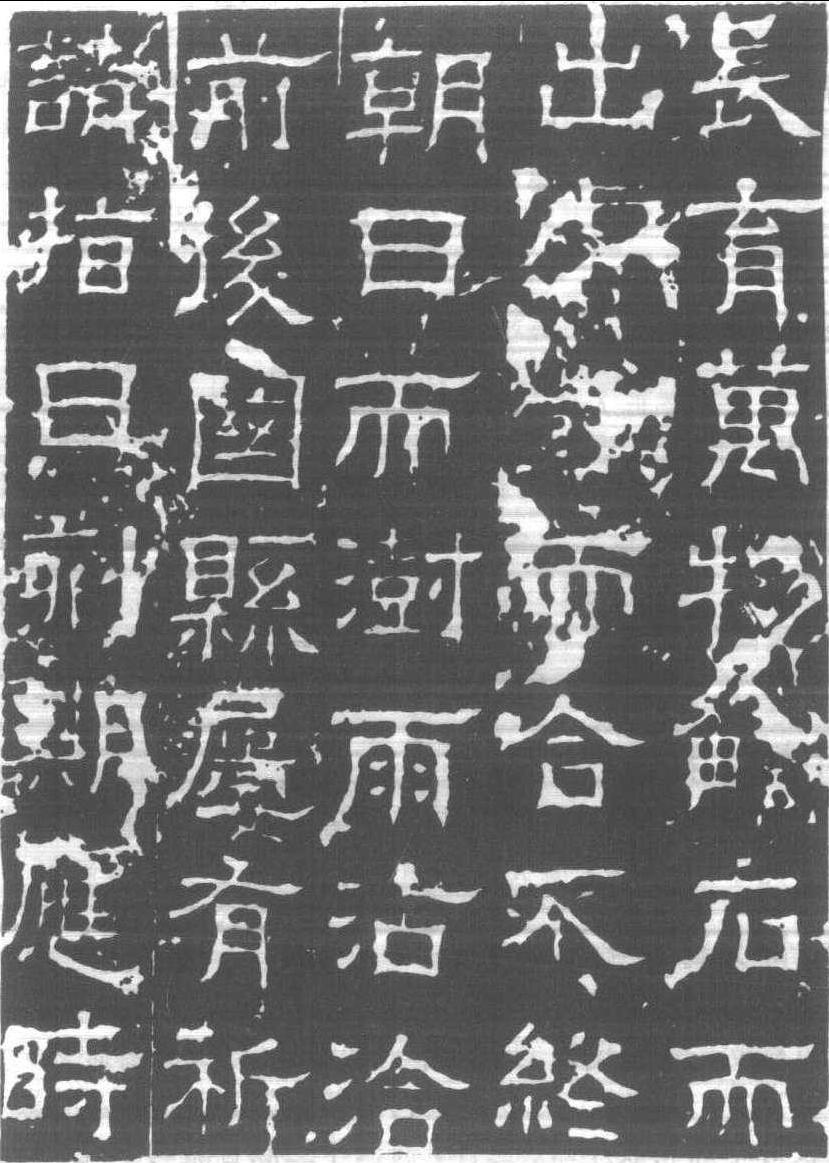 長育萬物觸石而
出而合不終
朝日而澍雨沾洽
前後國縣屢有祈
請指日刻期應時